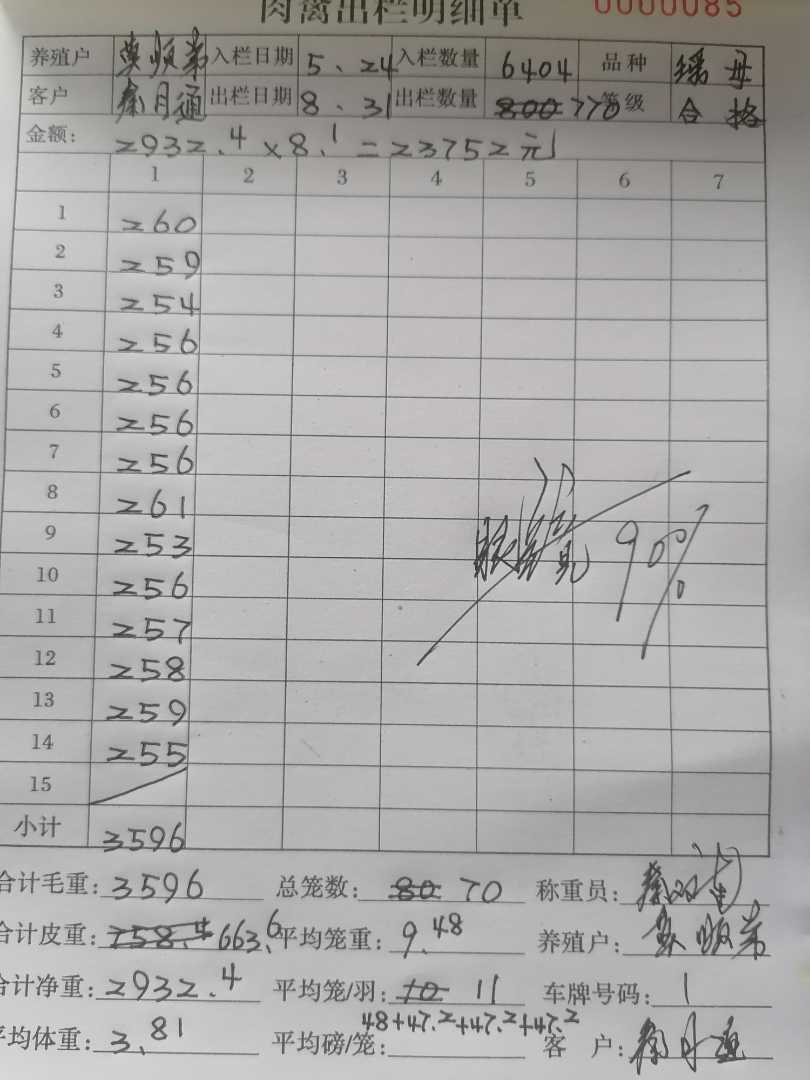 肉禽出栏明细单 0000085
养殖户 入栏日期 5、24 入栏数量 6404 品种 瑶母
客户 秦月通 出栏日期 8、31 出栏数量 800 770 等级 合格
金额: 2932.4×8.1=23752元
1 2 3 4 5 6 7
1 260
2 259
3 254
4 256
5 256
6 256
7 256
8 261
9 253
90%
10 256
11 257
12 258
13 259
14 255
15
小计 3596
合计毛重: 3596 总笼数: 80 70 称重员:
合计皮重: 758.4 663.6 平均笼重: 9.48 养殖户:
合计净重: 2932.4 平均笼/羽: 10 11 车牌号码: 1
平均体重: 3.81 平均磅/笼: 48+47.2+47.2+47.2 客 户: 秦月通